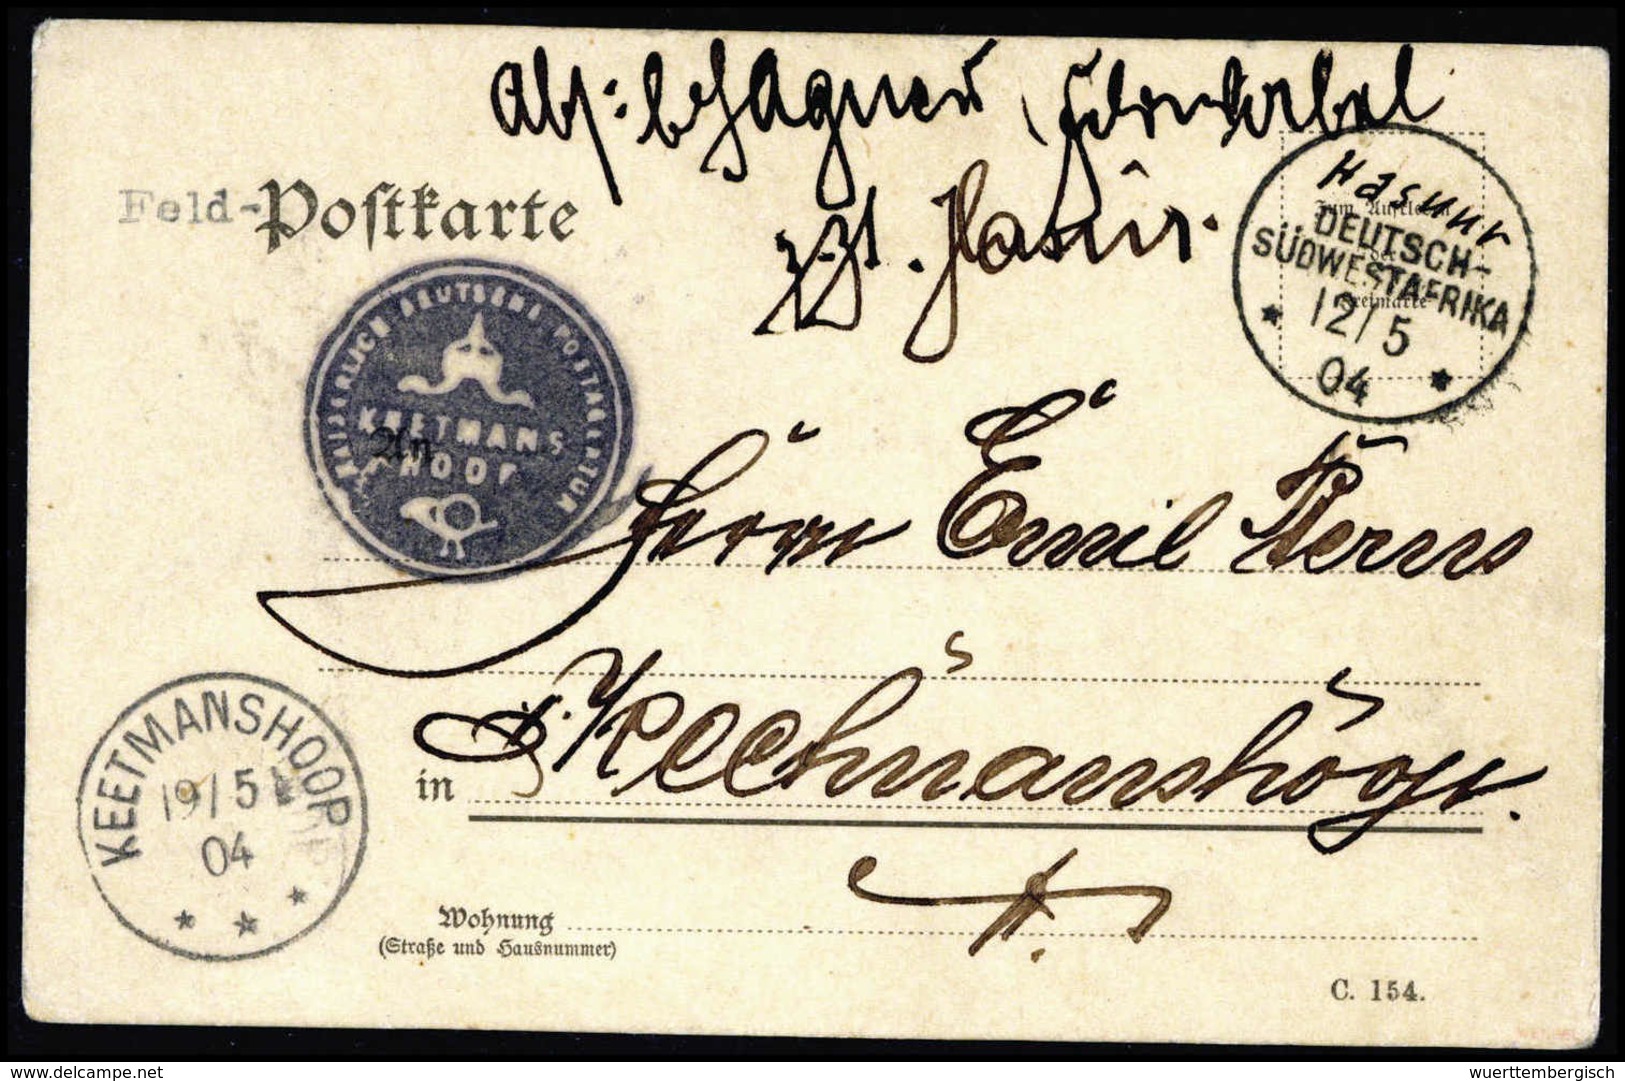 Abs:
Feld-Postkarte
z.Zt. Hasuur.
Hasuur
Zum Aufkleben
der
Freimarke
DEUTSCH-
SÜDWESTAFRIKA
12/5
04
KAISERLICH DEUTSCHE POSTAGENTUR
KEETMANS
HOOP
An
Herrn Emil
in Keetmanshoop.
KEETMANSHOOP
19/5
04
Wohnung
(Straße und Hausnummer)
C. 154.
delcampe.net
wuerttembergisch